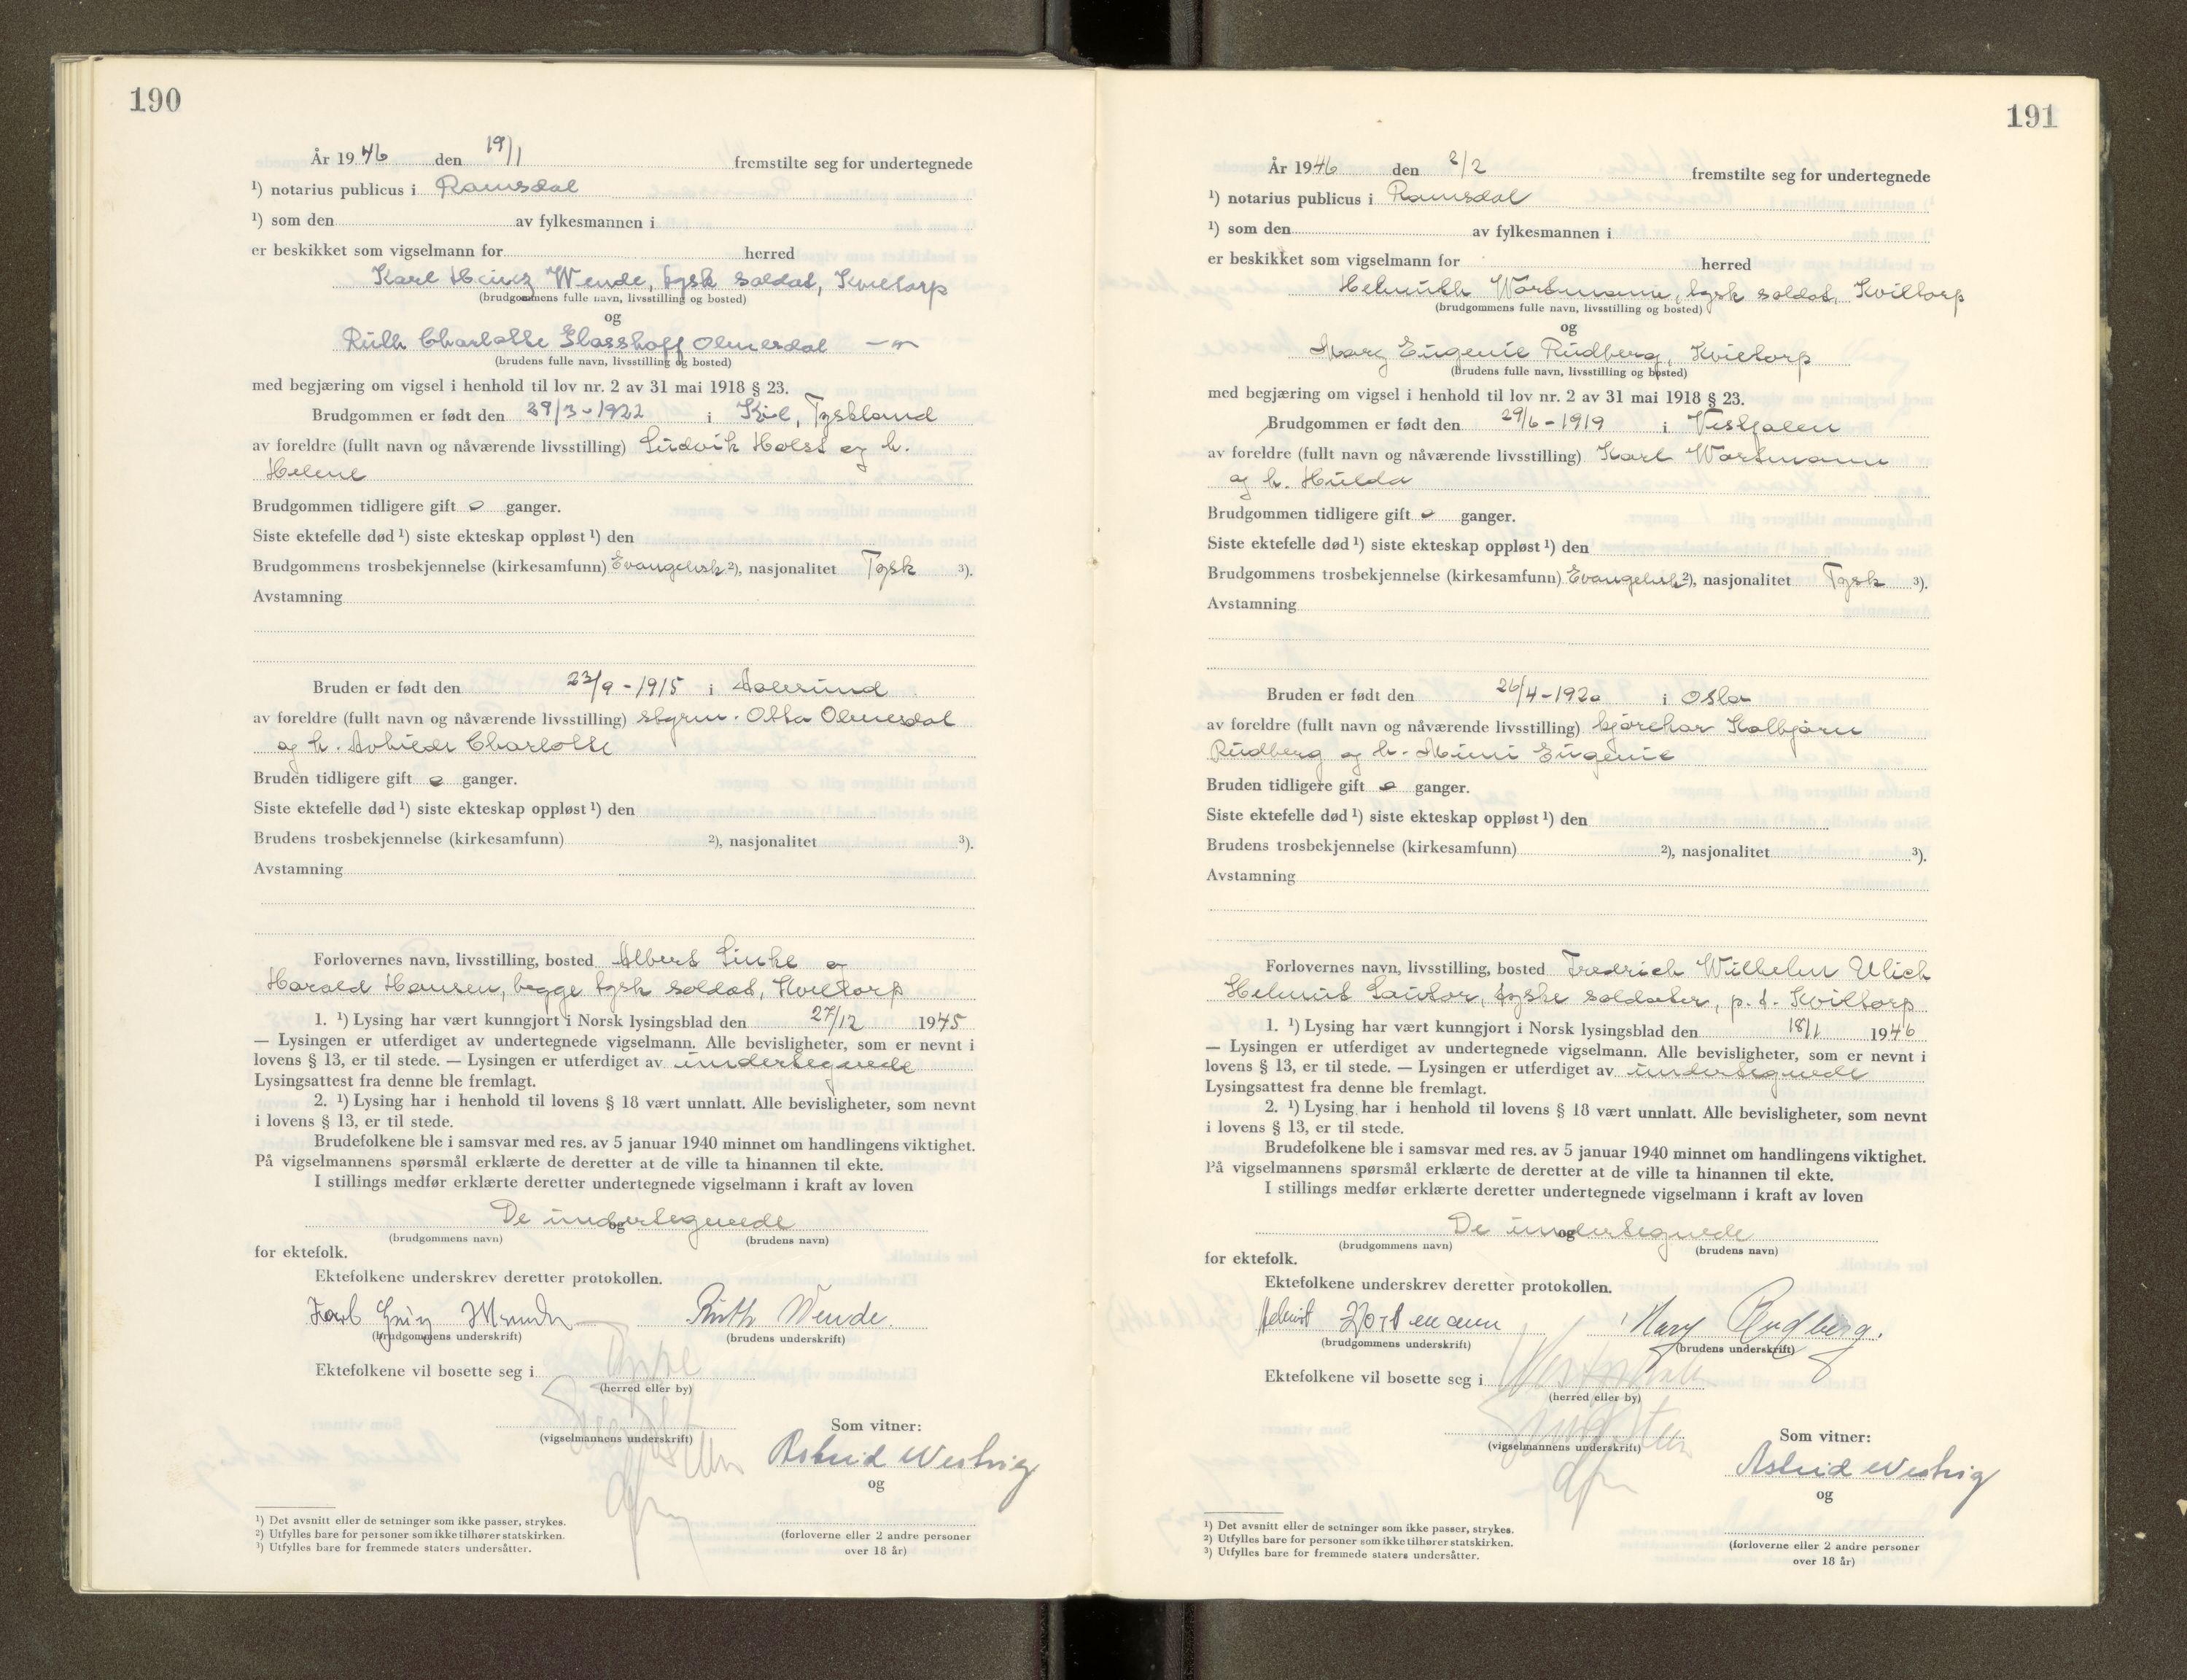 190
År 1946 den 19/1 fremstilte seg for undertegnede
¹) notarius publicus i Romsdal
¹) som den av fylkesmannen i
er beskikket som vigselmann for herred
Karl Heinz Wende, tysk soldat, Kvietorp
(brudgommens fulle navn, livsstilling og bosted)
og
Ruth Charlotte Glasshoff Olmesdal —"—
(brudens fulle navn, livsstilling og bosted)
med begjæring om vigsel i henhold til lov nr. 2 av 31 mai 1918 § 23.
Brudgommen er født den 29/3-1922 i Kiel, Tyskland
av foreldre (fullt navn og nåværende livsstilling) Ludvik Holst og h.
Helene
Brudgommen tidligere gift 0 ganger.
Siste ektefelle død ¹) siste ekteskap oppløst ¹) den
Brudgommens trosbekjennelse (kirkesamfunn) Evangelisk ²), nasjonalitet Tysk ³).
Avstamning
Bruden er født den 23/9-1915 i Aalesund
av foreldre (fullt navn og nåværende livsstilling) styrm. Otto Olmesdal
og h. Charlotte
Bruden tidligere gift 0 ganger.
Siste ektefelle død ¹) siste ekteskap oppløst ¹) den
Brudens trosbekjennelse (kirkesamfunn) ²), nasjonalitet ³).
Avstamning
Forlovernes navn, livsstilling, bosted Albert Linke og
Harald Hansen, begge tysk soldat, Kvietorp
1. ¹) Lysing har vært kunngjort i Norsk lysingsblad den 27/12 1945
— Lysingen er utferdiget av undertegnede vigselmann. Alle bevisligheter, som er nevnt i
lovens § 13, er til stede. — Lysingen er utferdiget av undertegnede
Lysingsattest fra denne ble fremlagt.
2. ¹) Lysing har i henhold til lovens § 18 vært unnlatt. Alle bevisligheter, som nevnt
i lovens § 13, er til stede.
Brudefolkene ble i samsvar med res. av 5 januar 1940 minnet om handlingens viktighet.
På vigselmannens spørsmål erklærte de deretter at de ville ta hinannen til ekte.
I stillings medfør erklærte deretter undertegnede vigselmann i kraft av loven
De undertegnede
og
(brudgommens navn) (brudens navn)
for ektefolk.
Ektefolkene underskrev deretter protokollen.
Karl Heinz Wende Ruth Wende.
(brudgommens underskrift) (brudens underskrift)
Ektefolkene vil bosette seg i
(herred eller by)
Som vitner:
(vigselmannens underskrift)
Astrid Westvig
og
¹) Det avsnitt eller de setninger som ikke passer, strykes.
²) Utfylles bare for personer som ikke tilhører statskirken.
³) Utfylles bare for fremmede staters undersåtter.
(forloverne eller 2 andre personer
over 18 år)
191
År 1946 den 2/2 fremstilte seg for undertegnede
¹) notarius publicus i Romsdal
¹) som den av fylkesmannen i
er beskikket som vigselmann for herred
Helmuth Wortmann, tysk soldat, Kviltorp
(brudgommens fulle navn, livsstilling og bosted)
og
Mary Eugenie Rudberg, Kvietorp
(brudens fulle navn, livsstilling og bosted)
med begjæring om vigsel i henhold til lov nr. 2 av 31 mai 1918 § 23.
Brudgommen er født den 29/6-1919 i Vestfalen
av foreldre (fullt navn og nåværende livsstilling) Karl Wortmann
og h. Hulda
Brudgommen tidligere gift 0 ganger.
Siste ektefelle død ¹) siste ekteskap oppløst ¹) den
Brudgommens trosbekjennelse (kirkesamfunn) Evangelisk ²), nasjonalitet Tysk ³).
Avstamning
Bruden er født den 26/4-1920 i Oslo
av foreldre (fullt navn og nåværende livsstilling) Kolbjørn
Rudberg og h. Mimi Eugenie
Bruden tidligere gift 0 ganger.
Siste ektefelle død ¹) siste ekteskap oppløst ¹) den
Brudens trosbekjennelse (kirkesamfunn) ²), nasjonalitet ³).
Avstamning
Forlovernes navn, livsstilling, bosted Fredrich Wilhelm Ulich
Helmut Sautor, tyske soldater, p.t. Kviltorp
1. ¹) Lysing har vært kunngjort i Norsk lysingsblad den 18/1 1946
— Lysingen er utferdiget av undertegnede vigselmann. Alle bevisligheter, som er nevnt i
lovens § 13, er til stede. — Lysingen er utferdiget av undertegnede
Lysingsattest fra denne ble fremlagt.
2. ¹) Lysing har i henhold til lovens § 18 vært unnlatt. Alle bevisligheter, som nevnt
i lovens § 13, er til stede.
Brudefolkene ble i samsvar med res. av 5 januar 1940 minnet om handlingens viktighet.
På vigselmannens spørsmål erklærte de deretter at de ville ta hinannen til ekte.
I stillings medfør erklærte deretter undertegnede vigselmann i kraft av loven
De undertegnede
og
(brudgommens navn) (brudens navn)
for ektefolk.
Ektefolkene underskrev deretter protokollen.
Helmut Wortmann Mary Rudberg.
(brudgommens underskrift) (brudens underskrift)
Ektefolkene vil bosette seg i Westphalen
(herred eller by)
Som vitner:
(vigselmannens underskrift)
Astrid Westvig
og
¹) Det avsnitt eller de setninger som ikke passer, strykes.
²) Utfylles bare for personer som ikke tilhører statskirken.
³) Utfylles bare for fremmede staters undersåtter.
(forloverne eller 2 andre personer
over 18 år)